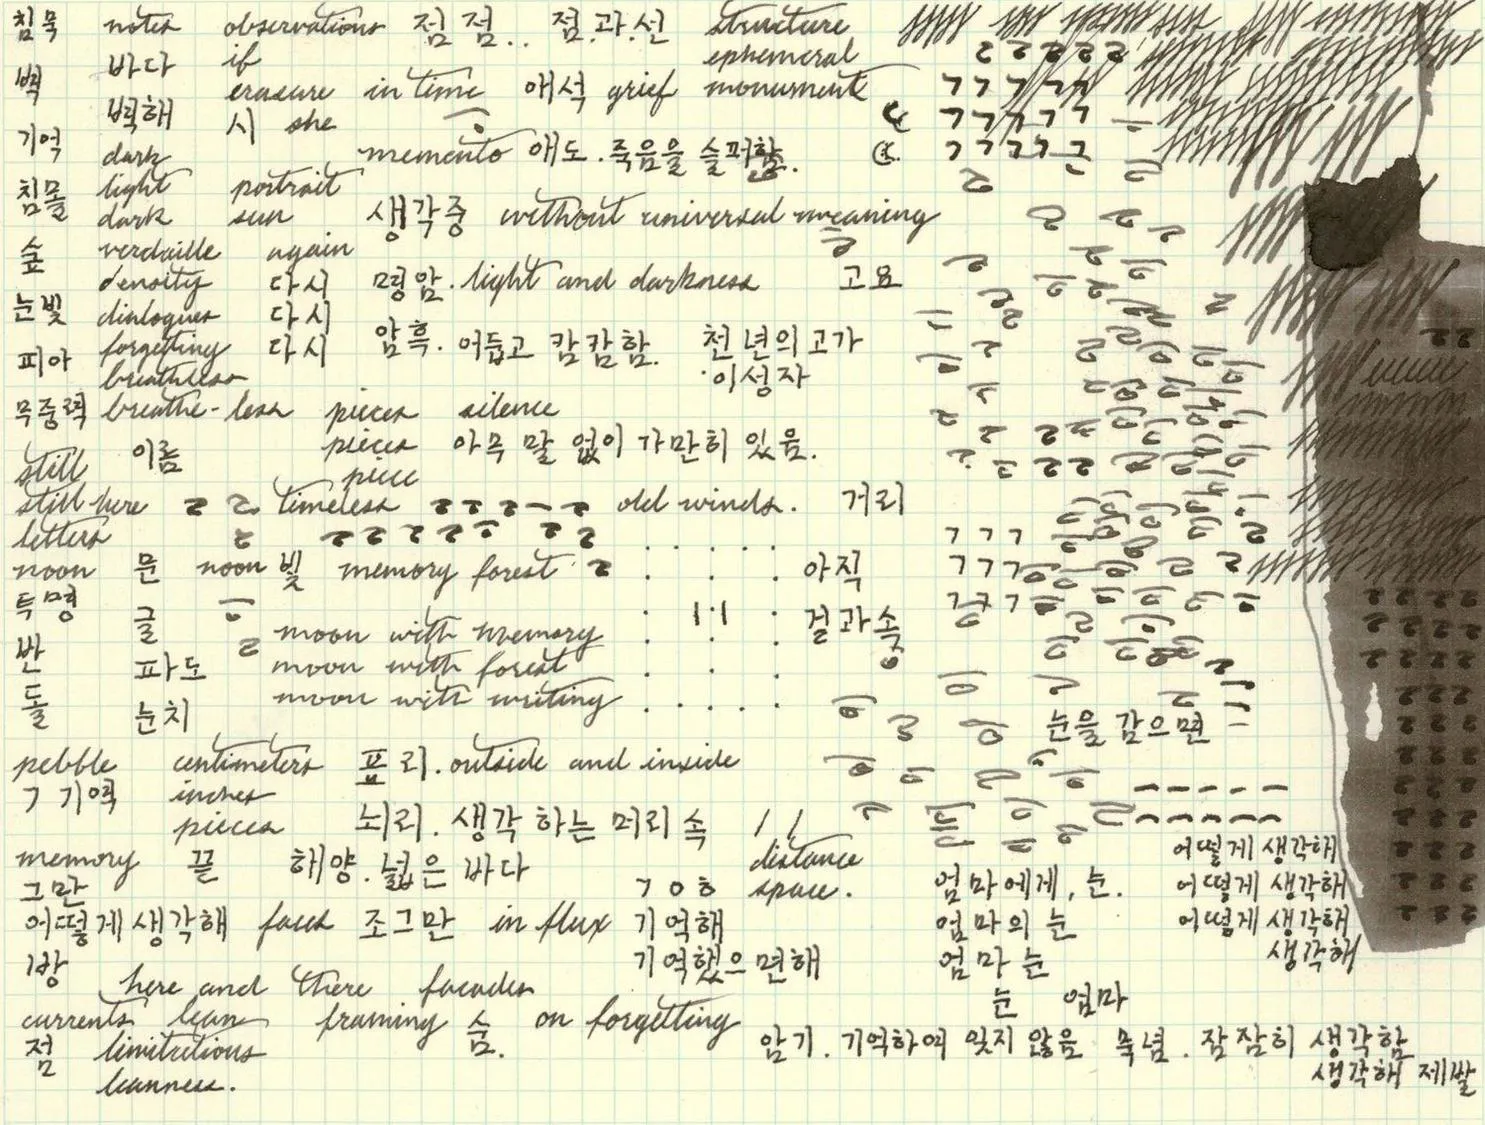 침묵 notes observations 점 점.. 점.과.선 structure
바다 if ephemeral
벽 erasure in time 애석 grief monument
벽해 시 she
기억 dark memento 애도. 죽음을 슬퍼함.
침몰 light portrait
dark sun 생각중 without universal meaning
숲 verdaille again
density 다시 명암. light and darkness 고요
눈빛 dialogues 다시
피아 forgetting 다시 암흑. 어둡고 캄캄함. 천 년의 고가
breathless 이성자
무중력 breathe-less pieces silence
still 이름 pieces 아무 말 없이 가만히 있음.
piece
still here timeless old winds. 거리
letters
noon 문 noon 빛 memory forest 아직
투명 글 moon with memory 걸과속
반 파도 moon with forest
돌 눈치 moon with writing
눈을 감으면
pebble centimeters 표리. outside and inside
ㄱ 기억 inches
pieces 뇌리. 생각하는 머리 속
memory 끝 해양. 넓은 바다 distance 어떻게 생각해
그만 ㄱ ㅇ ㅎ space. 엄마에게, 눈. 어떻게 생각해
어떻게 생각해 faces 조그만 in flux 기억해 엄마의 눈 어떻게 생각해
기억했으면해 엄마 눈 생각해
here and there facades 눈 엄마
currents lean framing 숨. on forgetting
점 암기. 기억하여 잊지 않음 묵념. 잠잠히 생각함
leanness. 생각해 제발